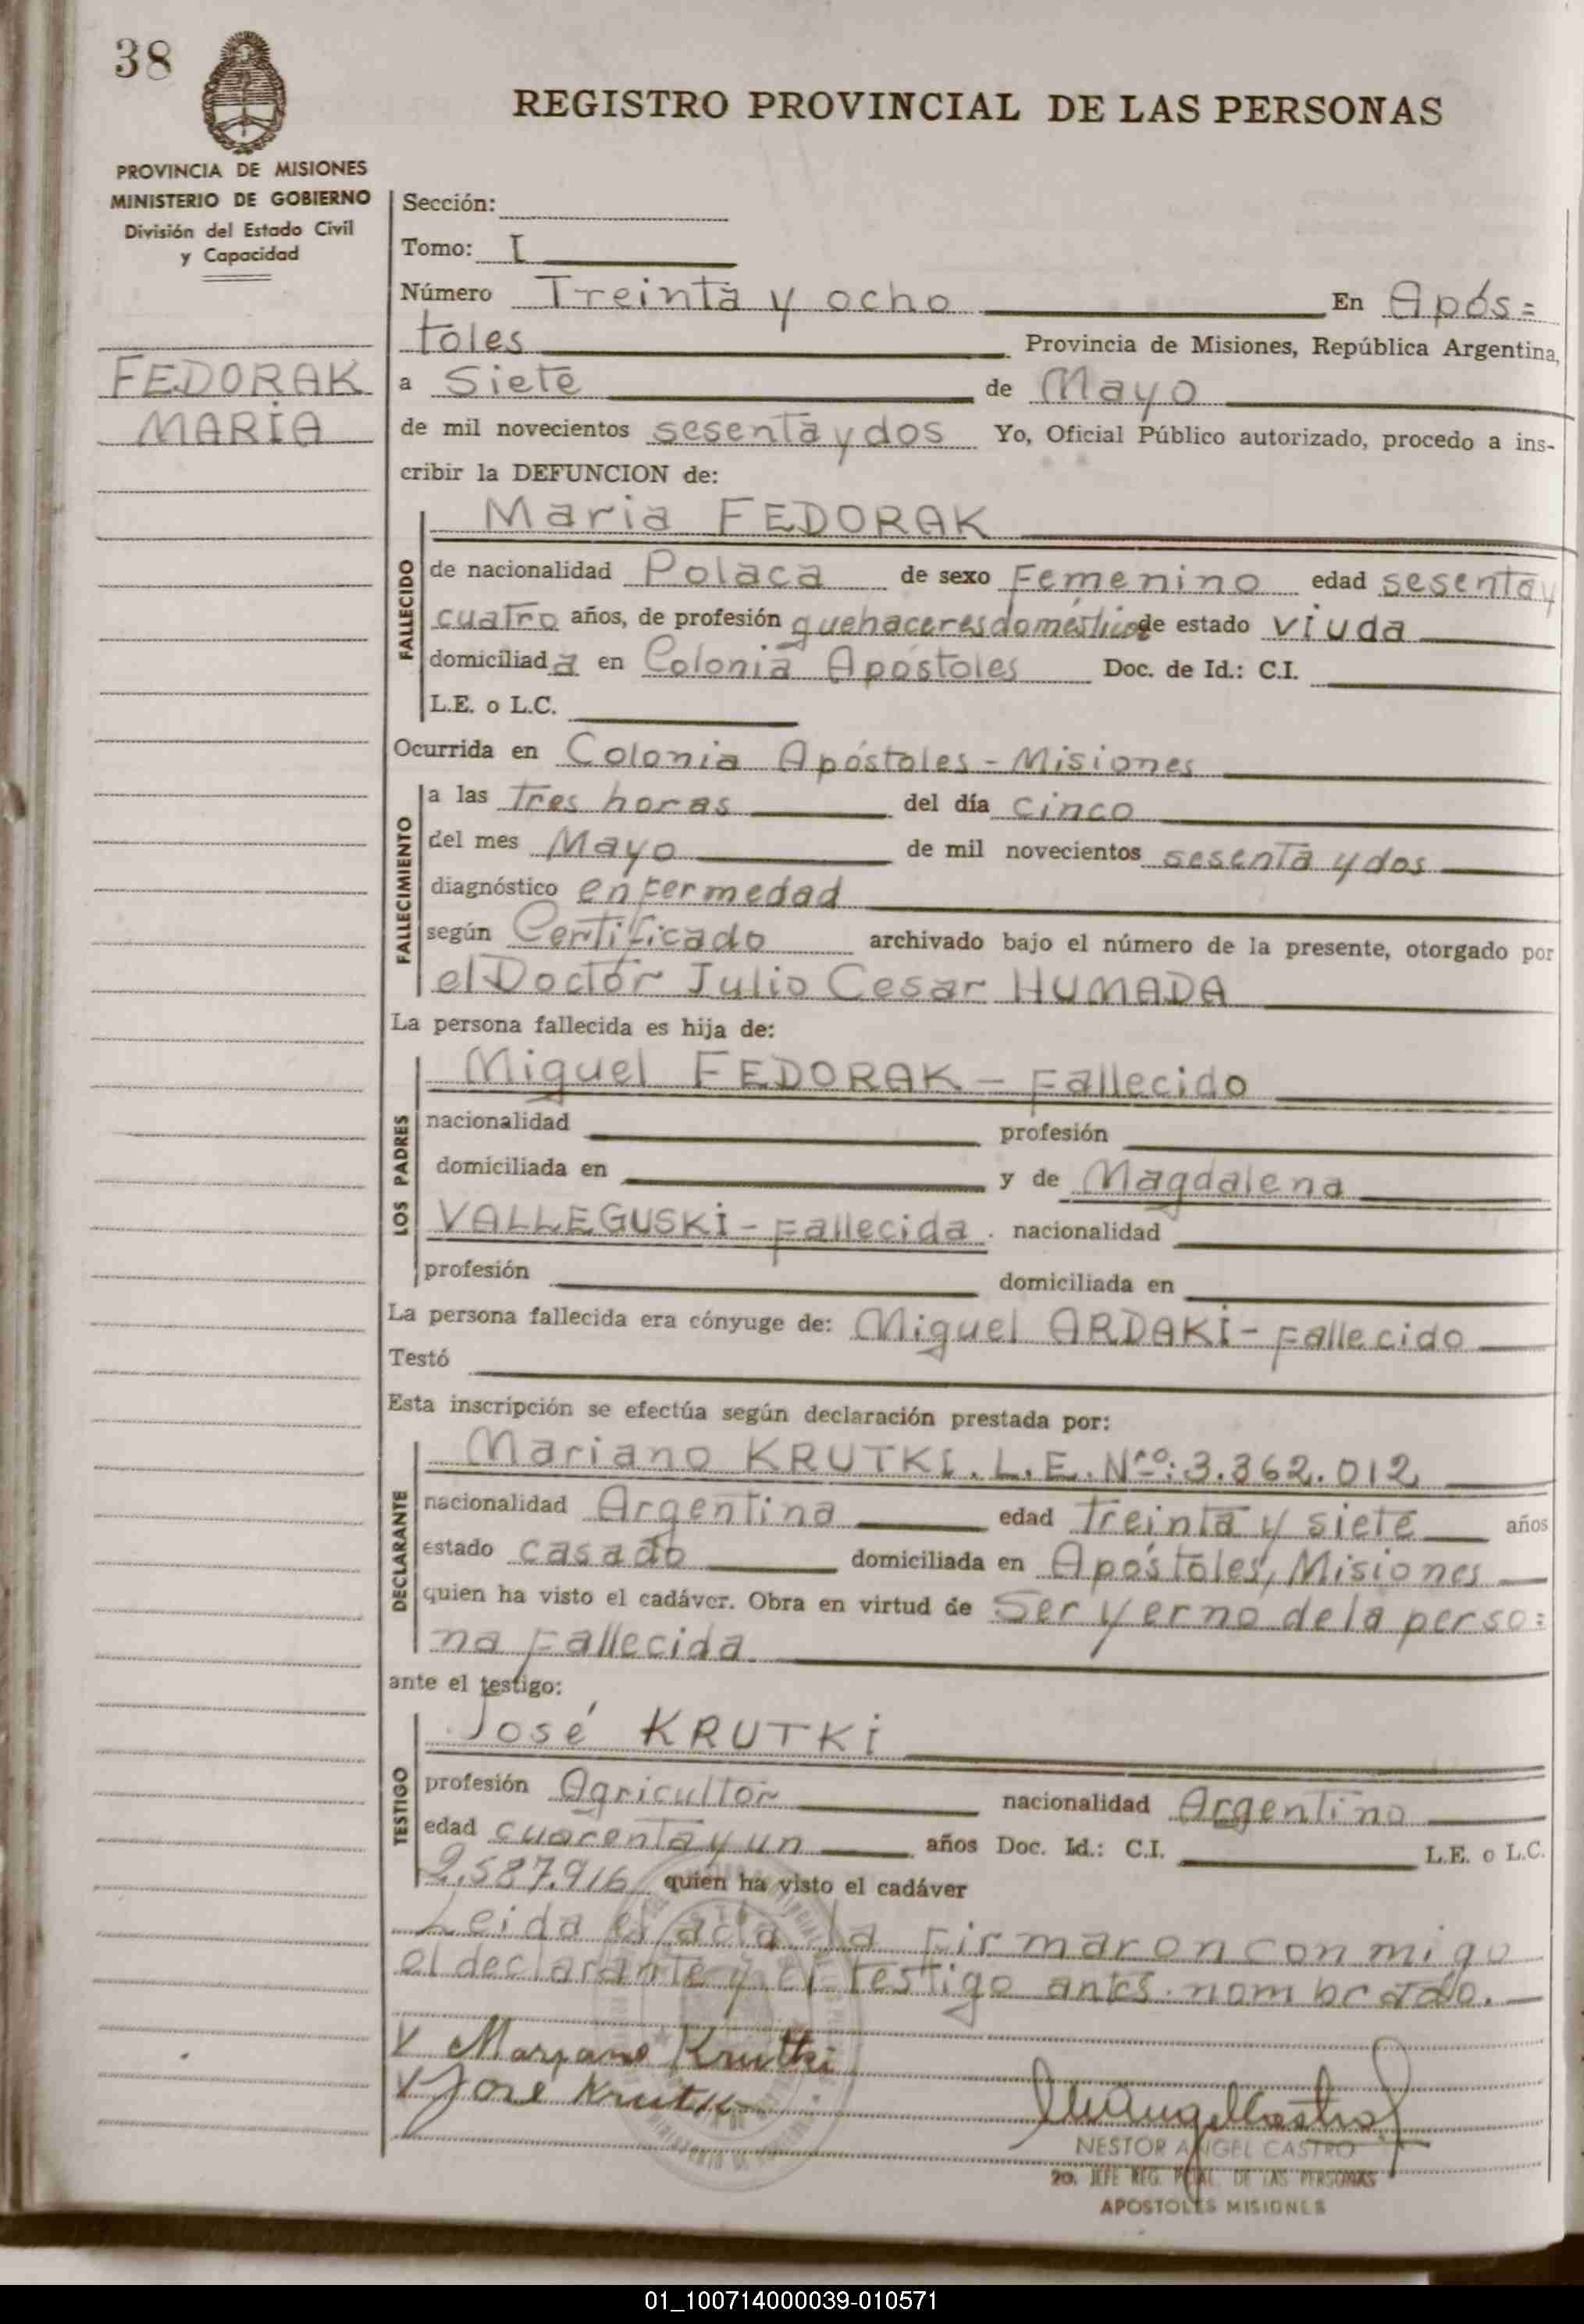 38
REGISTRO PROVINCIAL DE LAS PERSONAS
PROVINCIA DE MISIONES
MINISTERIO DE GOBIERNO
División del Estado Civil
y Capacidad
FEDORAK
MARÍA
Sección:
Tomo: I
Número Treinta y ocho En Após=
toles Provincia de Misiones, República Argentina,
a Siete de Mayo
de mil novecientos sesenta y dos Yo, Oficial Público autorizado, procedo a ins-
cribir la DEFUNCION de:
Maria FEDORAK
FALLECIDO
de nacionalidad Polaca de sexo Femenino edad sesenta y
cuatro años, de profesión quehaceres domésticos de estado viuda
domiciliada en Colonia Apóstoles Doc. de Id.: C.I.
L.E. o L.C.
Ocurrida en Colonia Apóstoles - Misiones
FALLECIMIENTO
a las Tres horas del día cinco
del mes Mayo de mil novecientos sesenta y dos
diagnóstico enfermedad
según Certificado archivado bajo el número de la presente, otorgado por
el Doctor Julio Cesar HUMADA
La persona fallecida es hija de:
LOS PADRES
Miguel FEDORAK - Fallecido
nacionalidad profesión
domiciliada en y de Magdalena
VALLEGUSKI - Fallecida. nacionalidad
profesión domiciliada en
La persona fallecida era cónyuge de: Miguel ARDAKI - Fallecido
Testó
Esta inscripción se efectúa según declaración prestada por:
DECLARANTE
Mariano KRUTKI. L.E. Nro: 3.362.012
nacionalidad Argentina edad Treinta y siete años
estado casado domiciliada en Apóstoles, Misiones
quien ha visto el cadáver. Obra en virtud de Ser yerno de la perso=
na Fallecida
ante el testigo:
TESTIGO
José KRUTKI
profesión Agricultor nacionalidad Argentino
edad cuarenta y un años Doc. Id.: C.I. L.E. o L.C.
2.587.916 quien ha visto el cadáver
Leida el acta la Firmaron conmigo
el declarante y el testigo antes nombrado.
Mariano Krutki
José Krutki
NESTOR ANGEL CASTRO
20. JEFE REG. PCIAL. DE LAS PERSONAS
APOSTOLES MISIONES
01_100714000039-010571